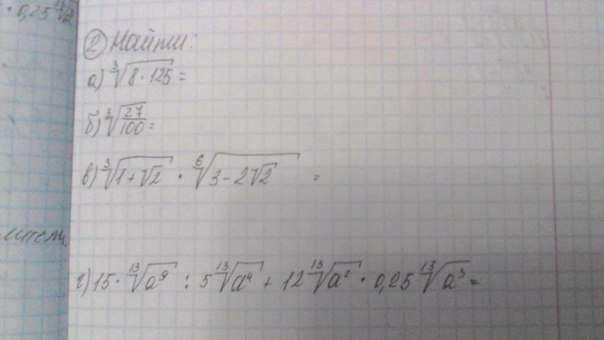 · 0,25
② Найти:
а) ∛(8·125) =
б) ∛(27/100) =
в) ∛(1+√2) · ⁶√(3-2√2) =
г) 15 · ¹³√a⁹ : 5 ¹³√a⁴ + 12 ¹³√a² · 0,25 ¹³√a³ =